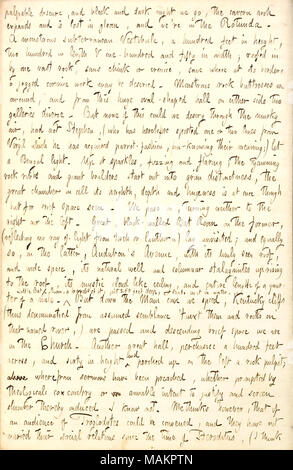 palpable obscure, and black and dark night we so, the cavern arch
expands and is lost in gloom, and we're in the Rotunda.
A monstrous subterranean Vestibule, a hundred feet in height,
two hundred in width & one hundred and fifty in width, roofed in
by one vast rock, sans chink or crevice, save where at its borders
a jagged cornice work may be descried. Monstrous rock buttresses are
around, and from this huge oval-shaped hall on either side two
galleries diverge. But more of this could we descry through the murky
air, had not Stephen, (who has heretofore spouted one or two lines from
Virgil which he has acquired parrot-fashion, un-knowing their meaning) let
a Bengal light. Up it sparkles, fizzing and flaring the yawning
rock ribs and giant boulders start out into grim distinctness, the
great chamber in all its breadth, depth and hugeness is at one though
but for brief space seen. We pass on, turning neither to the
right or the left. Great black-walled Bat Room on the former,
(reflecting no ray of light from torch or lanthorn) lay unvisited; and equally
so, in the latter, Audubon's Avenue, with its lively
and wide space, its natural well and columnar stalagmites uprising
to the roof, its mystic cloud like ceiling, and entire length of a quar-
ter of a mile. But down the Main cave we sped, Kentucky cliffs
(thus denominated from assumed semblance 'twixt them and rocks on
that named river,) are passed and descending brief space we are
in the Church. Another great hall, perchance a hundred feet
across, and sixty in height, perched up on the left a rock pulpit,
wherefrom sermons have been preached, whether prompted by
theologic oxcentory or an amiable intent to justify and screen
slumber thereby induced I know not. Methinks however, that if
an audience of Troglodytes could be convened, and they have not
varied their social relations since the time of Herodotus, (I think
alamy
Image ID: MAKPTN
www.alamy.com